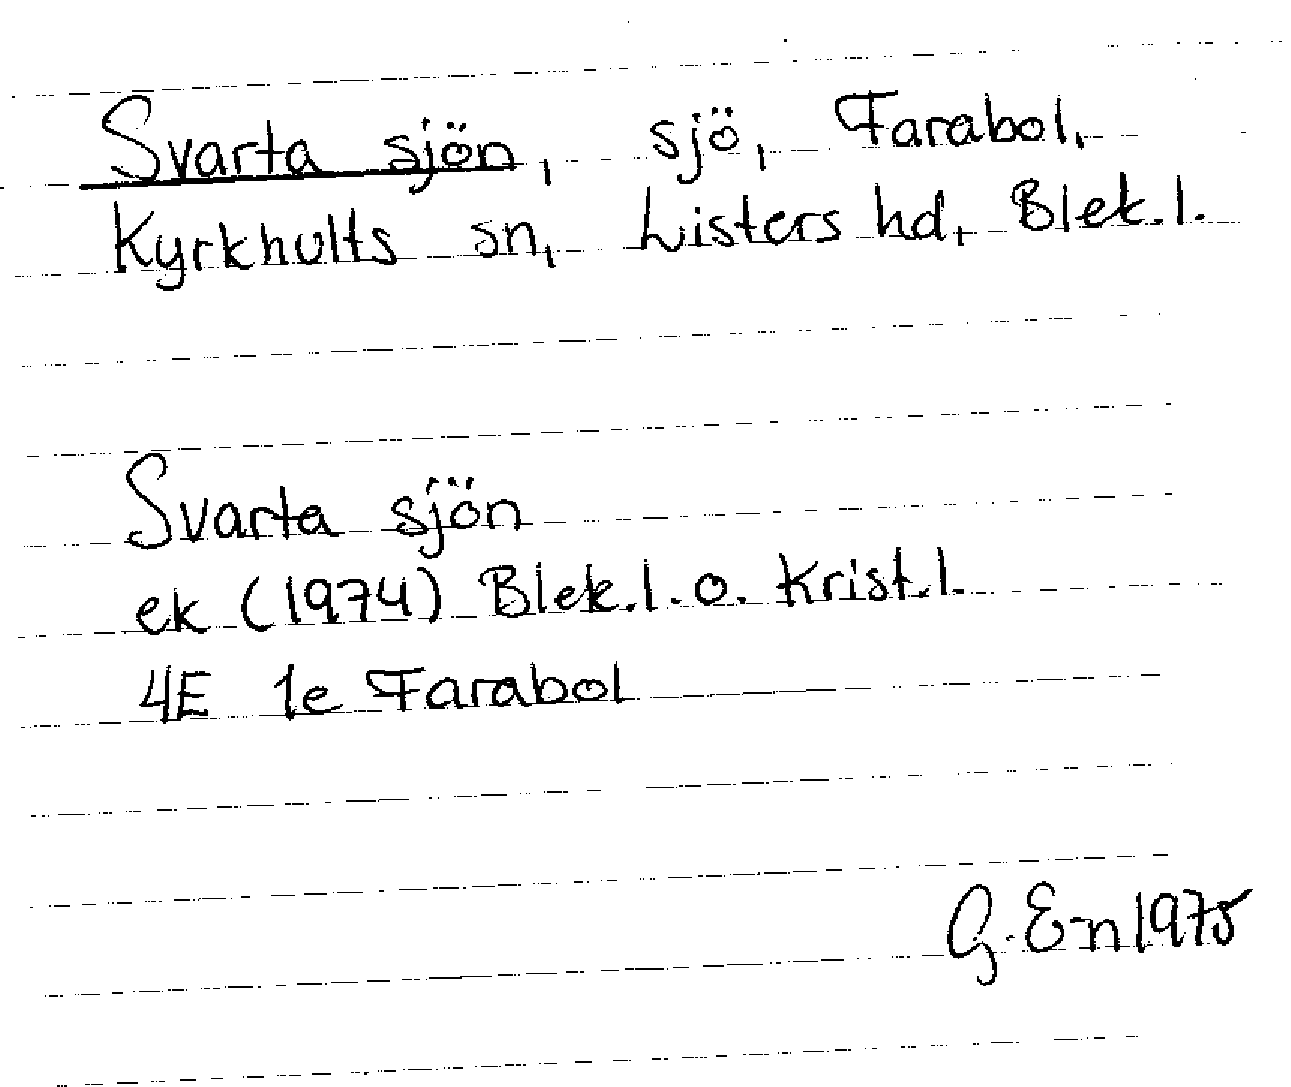 Svarta sjön, sjö, Farabol,
Kyrkhults sn, Listers hd, Blek.l.
Svarta sjön
ek (1974) Blek.l. o. Krist.l.
4E 1e Farabol
G. En 1975